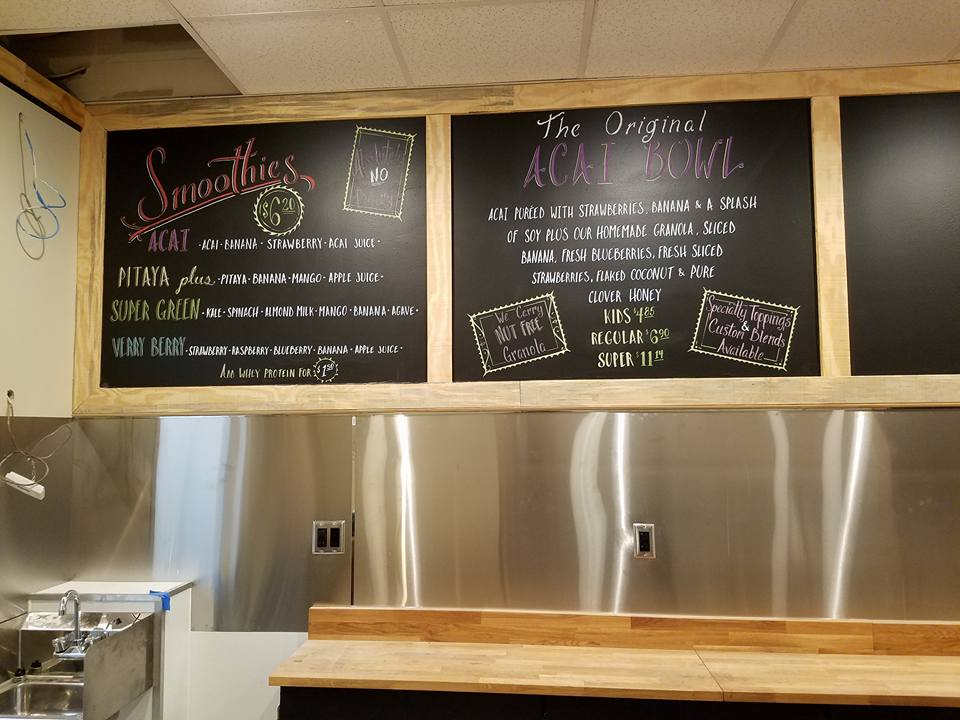 Smoothies
$6.20
Absolutely
NO
Dairy
ACAI - ACAI - BANANA - STRAWBERRY - ACAI JUICE -
PITAYA plus - PITAYA - BANANA - MANGO - APPLE JUICE -
SUPER GREEN - KALE - SPINACH - ALMOND MILK - MANGO - BANANA - AGAVE -
VERRY BERRY - STRAWBERRY - RASPBERRY - BLUEBERRY - BANANA - APPLE JUICE -
ADD WHEY PROTEIN FOR $1.50
The Original
ACAI BOWL
ACAI PURÉED WITH STRAWBERRIES, BANANA & A SPLASH
OF SOY PLUS OUR HOMEMADE GRANOLA, SLICED
BANANA, FRESH BLUEBERRIES, FRESH SLICED
STRAWBERRIES, FLAKED COCONUT & PURE
CLOVER HONEY
KIDS $4.85
REGULAR $6.90
SUPER $11.14
We Carry
NUT FREE
Granola
Specialty Toppings
&
Custom Blends
Available